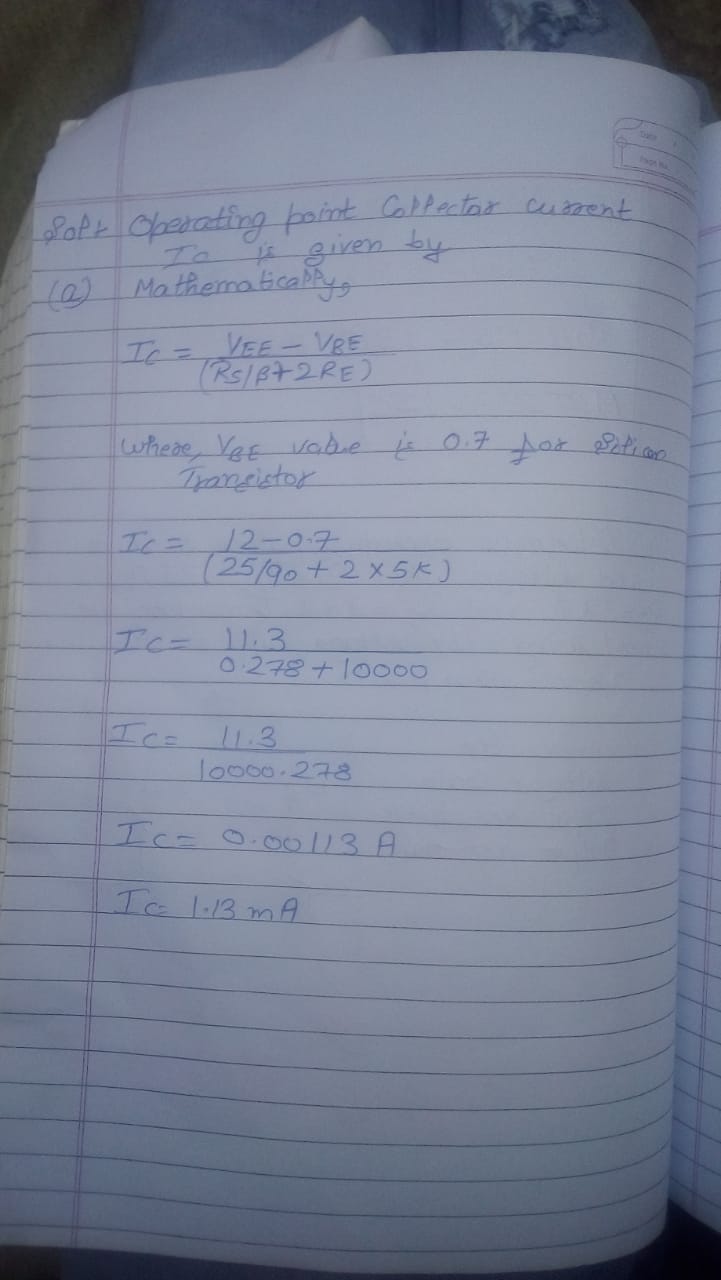 Date
Page No.
Soln Operating point Collector current
Ic is given by
(a) Mathematically,
Ic = VEE - VBE
(RS/β+2RE)
Where, VBE value is 0.7 for Silicon
Transistor
Ic = 12-0.7
(25/90 + 2 x 5K)
Ic = 11.3
0.278 + 10000
Ic = 11.3
10000.278
Ic = 0.00113 A
Ic = 1.13 mA